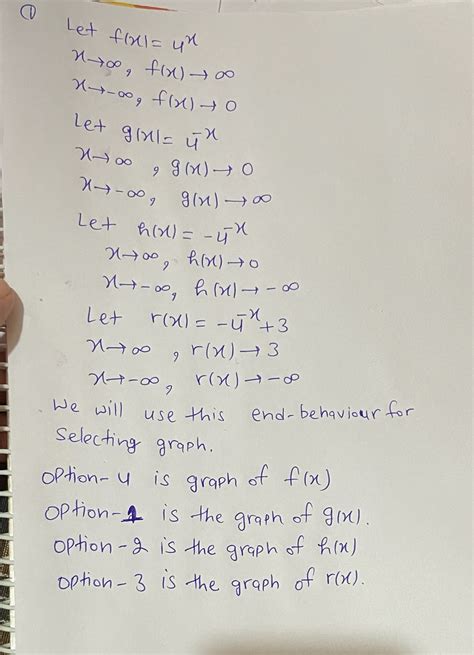 ①
Let f(x) = 4^x
x→∞, f(x)→∞
x→-∞, f(x)→0
Let g(x) = 4^-x
x→∞, g(x)→0
x→-∞, g(x)→∞
Let h(x) = -4^-x
x→∞, h(x)→0
x→-∞, h(x)→-∞
Let r(x) = -4^-x+3
x→∞, r(x)→3
x→-∞, r(x)→-∞
We will use this end-behaviour for
selecting graph.
option-4 is graph of f(x)
option-1 is the graph of g(x).
option-2 is the graph of h(x)
option-3 is the graph of r(x).